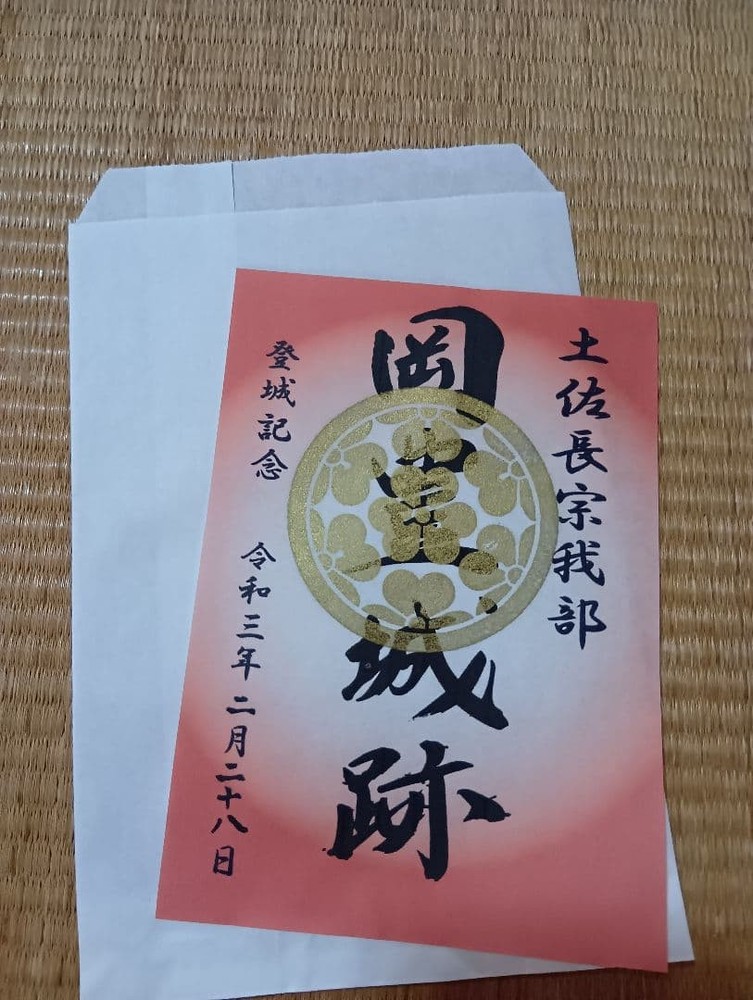 土佐長宗我部
岡豊城跡
登城記念 令和三年 二月二十八日